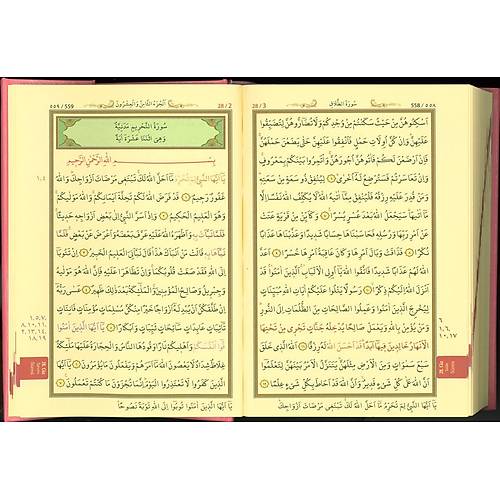 ٥٥٨ / 558
سُورَةُ الطَّلَاقِ
28 / 3
اَسْكِنُوهُنَّ مِنْ حَيْثُ سَكَنْتُمْ مِنْ وُجْدِكُمْ وَلَا تُضَٓارُّوهُنَّ لِتُضَيِّقُوا
عَلَيْهِنَّ وَاِنْ كُنَّ اُو۬لَاتِ حَمْلٍ فَاَنْفِقُوا عَلَيْهِنَّ حَتّٰى يَضَعْنَ حَمْلَهُنَّ
فَاِنْ اَرْضَعْنَ لَكُمْ فَاٰتُوهُنَّ اُجُورَهُنَّ وَأْتَمِرُوا بَيْنَكُمْ بِمَعْرُوفٍ
وَاِنْ تَعَاسَرْتُمْ فَسَتُرْضِعُ لَهُٓ اُخْرٰى ٦ لِيُنْفِقْ ذُو سَعَةٍ مِنْ سَعَتِه۪
وَمَنْ قُدِرَ عَلَيْهِ رِزْقُهُ فَلْيُنْفِقْ مِمَّٓا اٰتٰيهُ اللّٰهُ لَا يُكَلِّفُ اللّٰهُ نَفْسًا اِلَّا
مَٓا اٰتٰيهَا سَيَجْعَلُ اللّٰهُ بَعْدَ عُسْرٍ يُسْرًا ٧ وَكَاَيِّنْ مِنْ قَرْيَةٍ عَتَتْ
عَنْ اَمْرِ رَبِّهَا وَرُسُلِه۪ فَحَاسَبْنَاهَا حِسَابًا شَد۪يدًا وَعَذَّبْنَاهَا عَذَابًا
نُكْرًا ٨ فَذَاقَتْ وَبَالَ اَمْرِهَا وَكَانَ عَاقِبَةُ اَمْرِهَا خُسْرًا ٩ اَعَدَّ اللّٰهُ
لَهُمْ عَذَابًا شَد۪يدًا فَاتَّقُوا اللّٰهَ يَٓا اُو۬لِي الْاَلْبَابِ الَّذ۪ينَ اٰمَنُوا قَدْ
اَنْزَلَ اللّٰهُ اِلَيْكُمْ ذِكْرًا ١٠ رَسُولًا يَتْلُوا عَلَيْكُمْ اٰيَاتِ اللّٰهِ مُبَيِّنَاتٍ
لِيُخْرِجَ الَّذ۪ينَ اٰمَنُوا وَعَمِلُوا الصَّالِحَاتِ مِنَ الظُّلُمَاتِ اِلَى النُّورِ
وَمَنْ يُؤْمِنْ بِاللّٰهِ وَيَعْمَلْ صَالِحًا يُدْخِلْهُ جَنَّاتٍ تَجْر۪ي مِنْ تَحْتِهَا
الْاَنْهَارُ خَالِد۪ينَ ف۪يهَٓا اَبَدًا قَدْ اَحْسَنَ اللّٰهُ لَهُ رِزْقًا ١١ اَللّٰهُ الَّذ۪ي خَلَقَ
سَبْعَ سَمٰوَاتٍ وَمِنَ الْاَرْضِ مِثْلَهُنَّ يَتَنَزَّلُ الْاَمْرُ بَيْنَهُنَّ لِتَعْلَمُٓوا
اَنَّ اللّٰهَ عَلٰى كُلِّ شَيْءٍ قَد۪يرٌ وَاَنَّ اللّٰهَ قَدْ اَحَاطَ بِكُلِّ شَيْءٍ عِلْمًا ١٢
يَٓا اَيُّهَا النَّبِيُّ لِمَ تُحَرِّمُ مَٓا اَحَلَّ اللّٰهُ لَكَ تَبْتَغ۪ي مَرْضَاتَ اَزْوَاجِكَ
28 / 2
اَلْجُزْءُ الثَّامِنُ وَالْعِشْرُونَ
559 / ٥٥٩
سُورَةُ التَّحْر۪يمِ مَدَنِيَّةٌ
وَهِيَ اثْنَتَا عَشْرَةَ اٰيَةً
بِسْمِ اللّٰهِ الرَّحْمٰنِ الرَّح۪يمِ
يَٓا اَيُّهَا النَّبِيُّ لِمَ تُحَرِّمُ مَٓا اَحَلَّ اللّٰهُ لَكَ تَبْتَغ۪ي مَرْضَاتَ اَزْوَاجِكَ وَاللّٰهُ
غَفُورٌ رَح۪يمٌ ١ قَدْ فَرَضَ اللّٰهُ لَكُمْ تَحِلَّةَ اَيْمَانِكُمْ وَاللّٰهُ مَوْلٰيكُمْ
وَهُوَ الْعَل۪يمُ الْحَك۪يمُ ٢ وَاِذْ اَسَرَّ النَّبِيُّ اِلٰى بَعْضِ اَزْوَاجِه۪ حَد۪يثًا
فَلَمَّا نَبَّاَتْ بِه۪ وَاَظْهَرَهُ اللّٰهُ عَلَيْهِ عَرَّفَ بَعْضَهُ وَاَعْرَضَ عَنْ بَعْضٍ فَلَمَّا
نَبَّاَهَا بِه۪ قَالَتْ مَنْ اَنْبَاَكَ هٰذَا قَالَ نَبَّاَنِيَ الْعَل۪يمُ الْخَب۪يرُ ٣ اِنْ تَتُوبَٓا
اِلَى اللّٰهِ فَقَدْ صَغَتْ قُلُوبُكُمَا وَاِنْ تَظَاهَرَا عَلَيْهِ فَاِنَّ اللّٰهَ هُوَ مَوْلٰيهُ
وَجِبْر۪يلُ وَصَالِحُ الْمُؤْمِن۪ينَ وَالْمَلٰٓئِكَةُ بَعْدَ ذٰلِكَ ظَه۪يرٌ ٤ عَسٰى رَبُّهُٓ
اِنْ طَلَّقَكُنَّ اَنْ يُبْدِلَهُٓ اَزْوَاجًا خَيْرًا مِنْكُنَّ مُسْلِمَاتٍ مُؤْمِنَاتٍ قَانِتَاتٍ
تَٓائِبَاتٍ عَابِدَاتٍ سَٓائِحَاتٍ ثَيِّبَاتٍ وَاَبْكَارًا ٥ يَٓا اَيُّهَا الَّذ۪ينَ اٰمَنُوا
قُٓوا اَنْفُسَكُمْ وَاَهْل۪يكُمْ نَارًا وَقُودُهَا النَّاسُ وَالْحِجَارَةُ عَلَيْهَا مَلٰٓئِكَةٌ
غِلَاظٌ شِدَادٌ لَا يَعْصُونَ اللّٰهَ مَٓا اَمَرَهُمْ وَيَفْعَلُونَ مَا يُؤْمَرُونَ ٦ يَٓا اَيُّهَا
الَّذ۪ينَ كَفَرُوا لَا تَعْتَذِرُوا الْيَوْمَ اِنَّمَا تُجْزَوْنَ مَا كُنْتُمْ تَعْمَلُونَ ٧
يَٓا اَيُّهَا الَّذ۪ينَ اٰمَنُوا تُوبُٓوا اِلَى اللّٰهِ تَوْبَةً نَصُوحًا